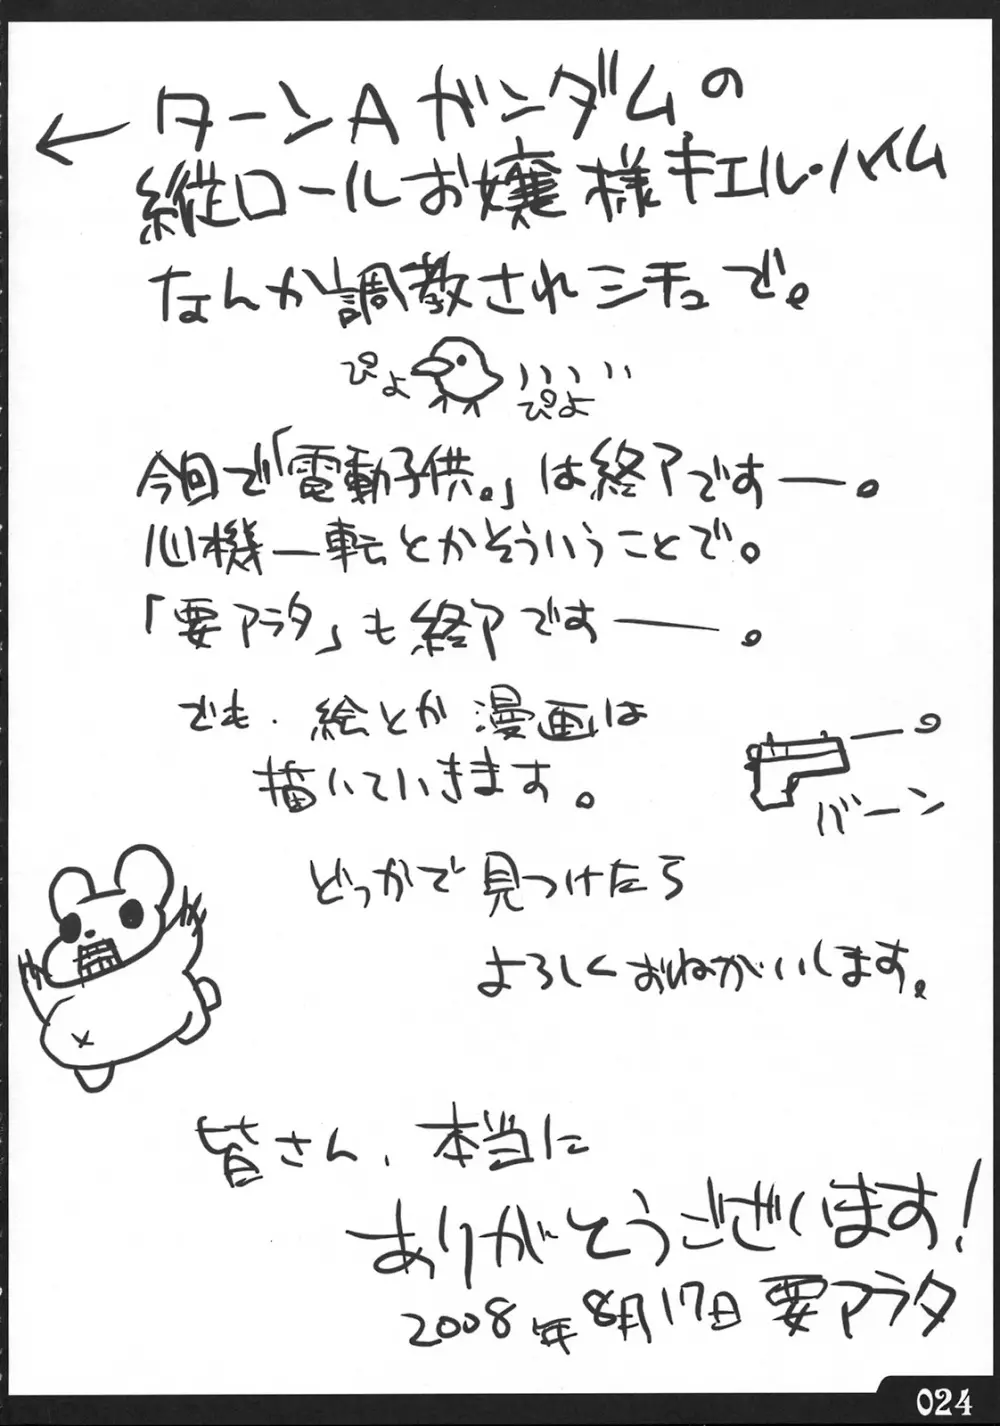 ← ターンAガンダムの
縦ロールお嬢様キエル・ハイム
なんか調教されシチュで。
ぴよ
ぴよ
今回で「電動子供。」は終了ですー。
心機一転とかそういうことで。
「要アラタ」も終了ですー。
でも、絵とか漫画は
描いていきます。
バーン
どっかで見つけたら
よろしくおねがいします。
皆さん、本当に
ありがとうございます!
2008年8月17日 要アラタ
024